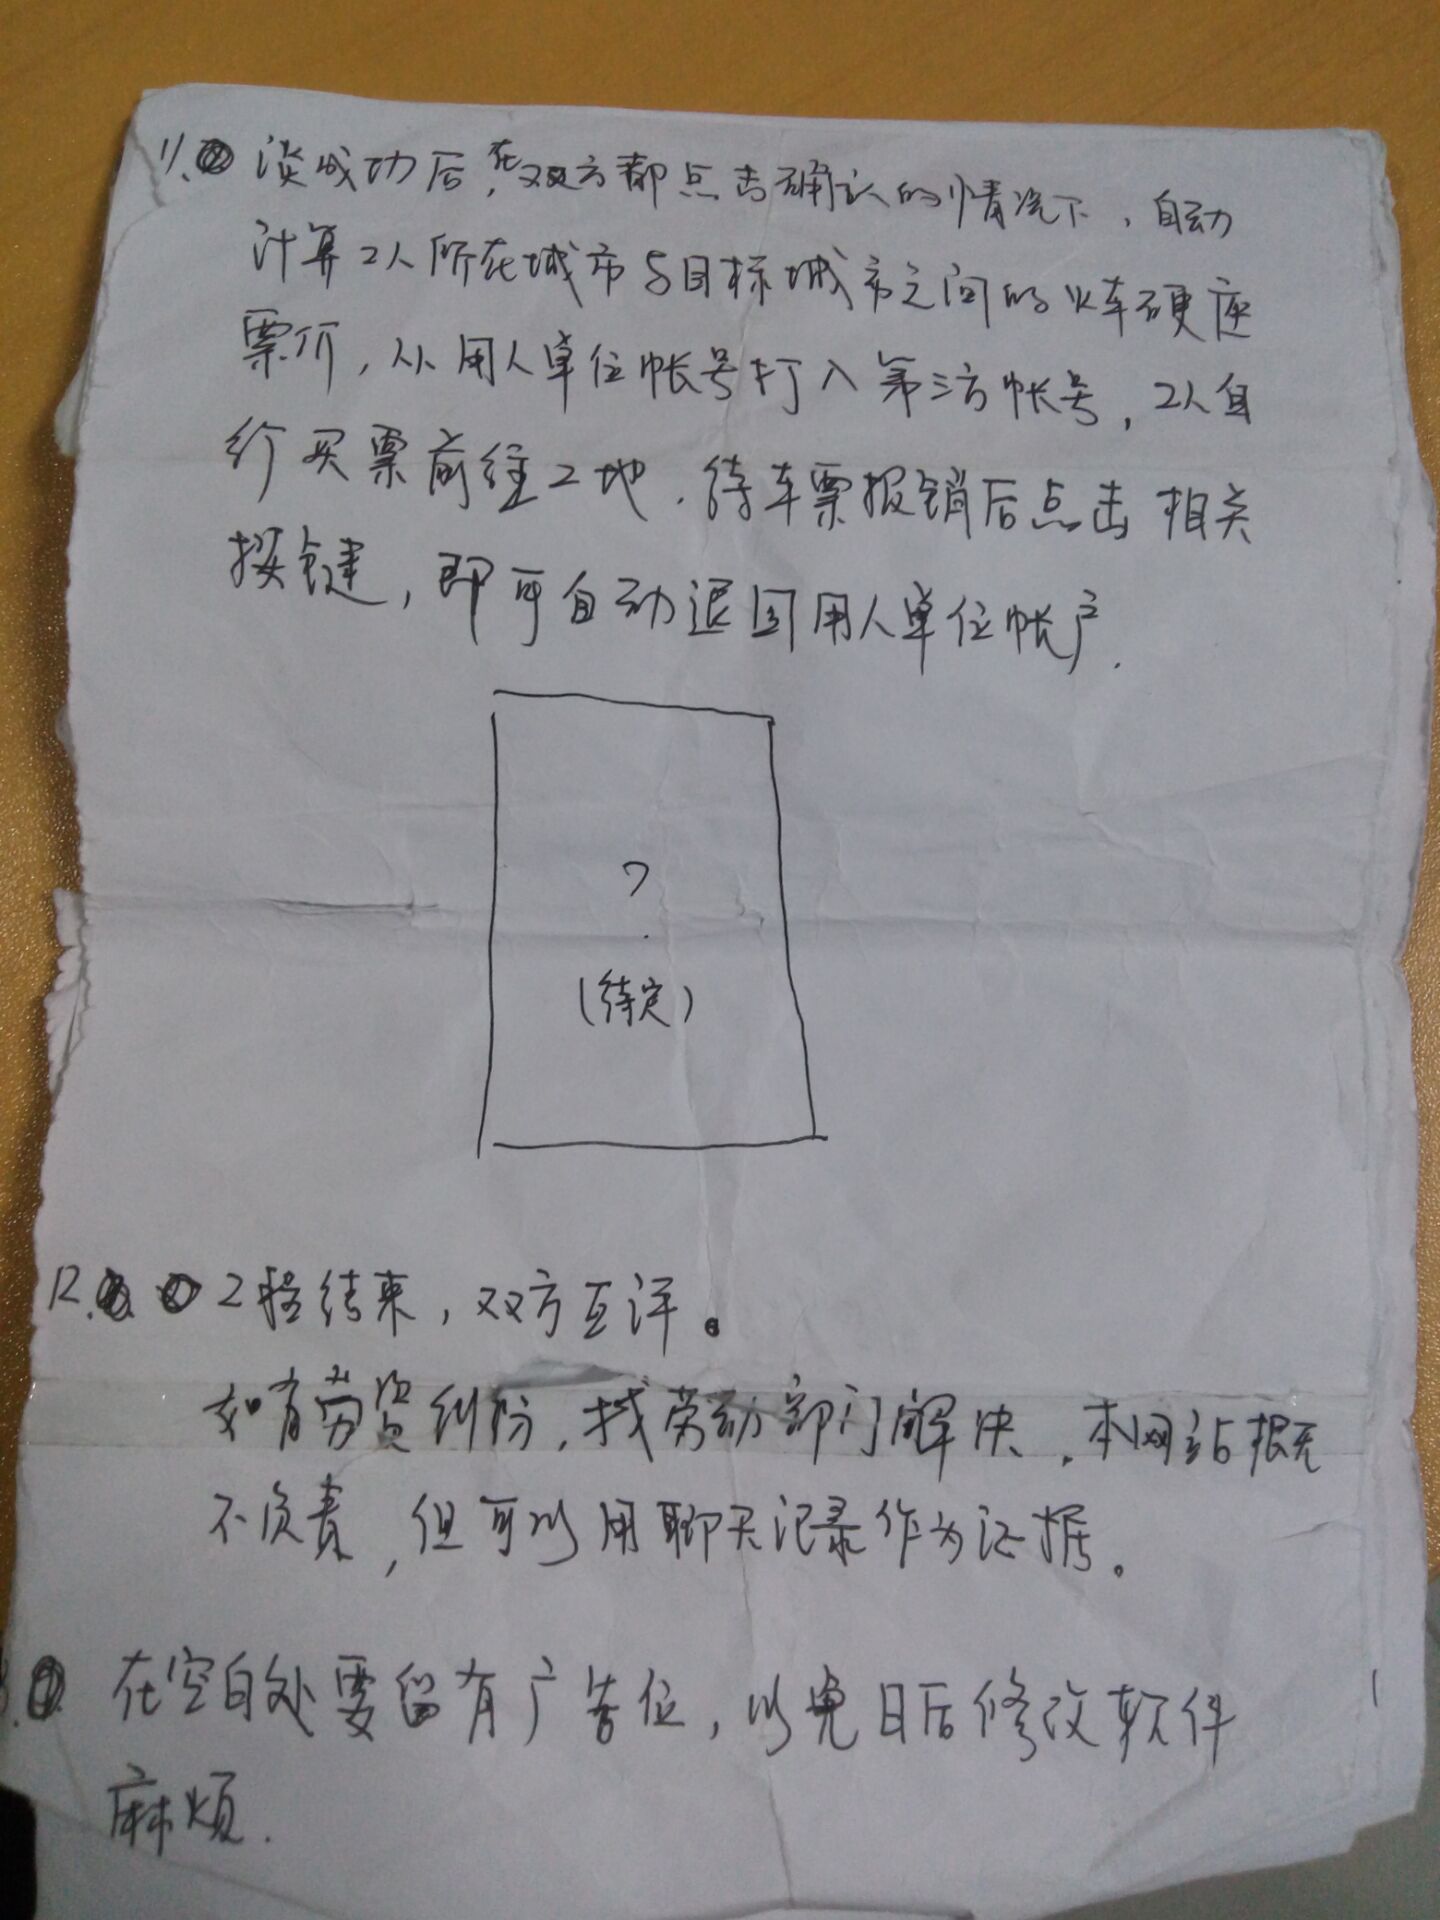 11. 谈成功后，在双方都点击确认的情况下，自动
计算工人所在城市与目标城市之间的火车硬座
票价，从用人单位帐号打入第三方帐号，工人自
行买票前往工地．待车票报销后点击相关
按键，即可自动退回用人单位帐户．
？
（待定）
12. 工程结束，双方互评。
如有劳资纠纷，找劳动部门解决．本网站概
不负责，但可以用聊天记录作为证据。
在空白处要留有广告位，以免日后修改软件
麻烦．